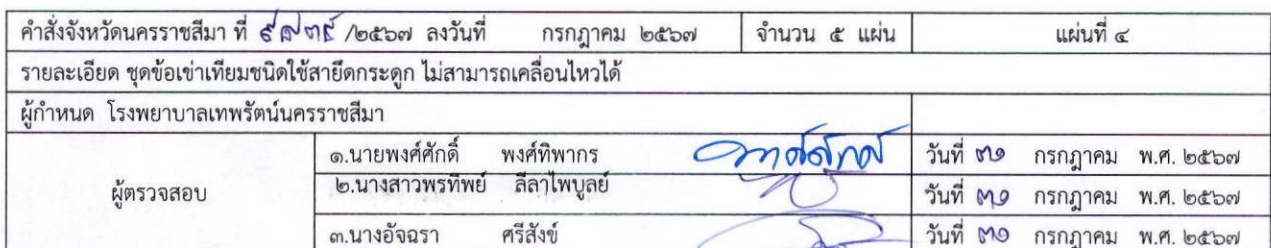 คำสั่งจังหวัดนครราชสีมา ที่ /๒๕๖๗ ลงวันที่ กรกฎาคม ๒๕๖๗ จำนวน ๕ แผ่น แผ่นที่ ๔
รายละเอียด ชุดข้อเข่าเทียมชนิดใช้สายยึดกระดูก ไม่สามารถเคลื่อนไหวได้
ผู้กำหนด โรงพยาบาลเทพรัตน์นครราชสีมา
ผู้ตรวจสอบ
๑.นายพงศ์ศักดิ์ พงศ์ทิพากร วันที่ ๓๑ กรกฎาคม พ.ศ. ๒๕๖๗
๒.นางสาวพรทิพย์ ลีลาไพบูลย์ วันที่ ๓๑ กรกฎาคม พ.ศ. ๒๕๖๗
๓.นางอัจฉรา ศรีสังข์ วันที่ ๓๑ กรกฎาคม พ.ศ. ๒๕๖๗